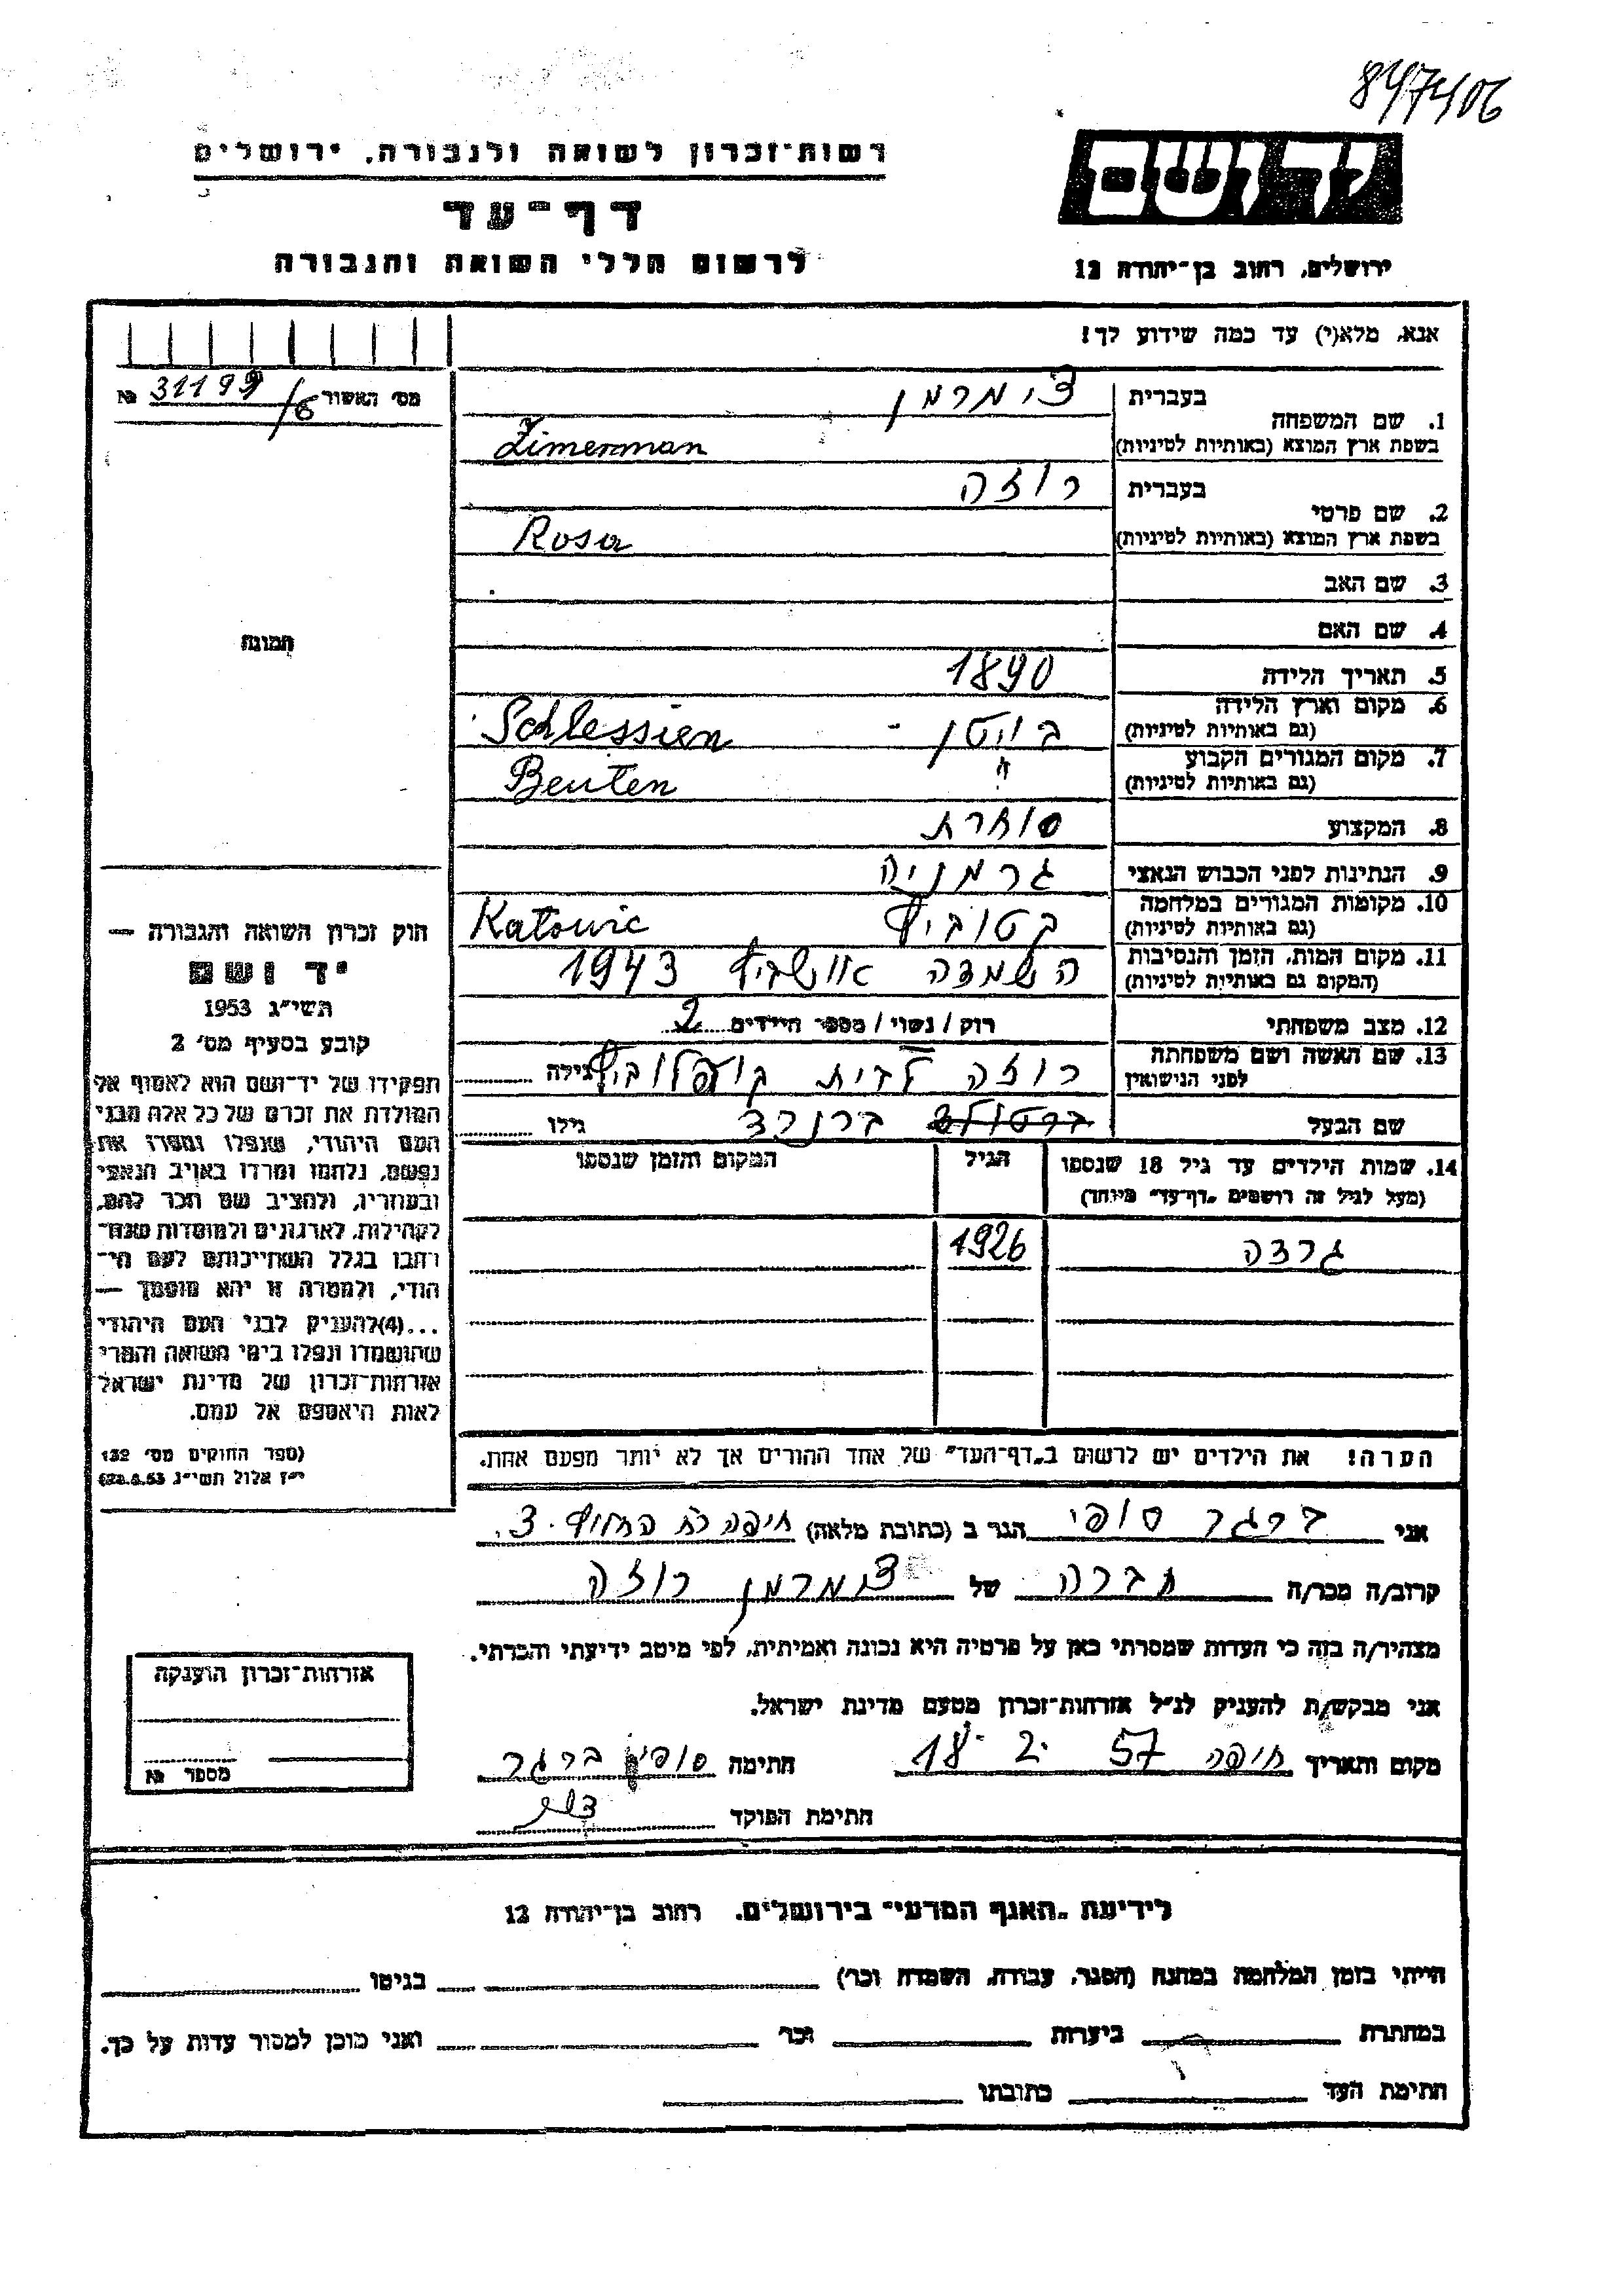 847406
רשות־זכרון לשואה ולגבורה, ירושלים
יד ושם
דף־עד
לרשום חללי השואה והגבורה
ירושלים, רחוב בן־יהודה 12
אנא, מלא(י) עד כמה שידוע לך!
מס׳ האשור 31199/6 №
1. שם המשפחה
בעברית צימרמן
בשפת ארץ המוצא (באותיות לטיניות) Zimerman
2. שם פרטי
בעברית רוזה
בשפת ארץ המוצא (באותיות לטיניות) Rosa
3. שם האב
4. שם האם
תמונה
5. תאריך הלידה 1890
6. מקום וארץ הלידה
(גם באותיות לטיניות) ביוטן - Schlessien
7. מקום המגורים הקבוע
(גם באותיות לטיניות) " Beuten
8. המקצוע סוחרת
9. הנתינות לפני הכבוש הנאצי גרמניה
10. מקומות המגורים במלחמה
(גם באותיות לטיניות) קטוביץ Katowic
11. מקום המות, הזמן והנסיבות
(המקום גם באותיות לטיניות) השמדה אושביץ 1943
12. מצב משפחתי רוק/נשוי/מספר הילדים 2
13. שם האשה ושם משפחתה
לפני הנישואין רוזה לבית גילה
שם הבעל ברנרד גילו
14. שמות הילדים עד גיל 18 שנספו
(מעל לגיל זה רושמים „דף־עד״ מיוחד)
הגיל
המקום והזמן שנספו
גרצה 1926
הערה! את הילדים יש לרשום ב„דף־העד״ של אחד ההורים אך לא יותר מפעם אחת.
חוק זכרון השואה והגבורה —
יד ושם
תשי״ג 1953
קובע בסעיף מס׳ 2
תפקידו של יד־ושם הוא לאסוף אל
המולדת את זכרם של כל אלה מבני
העם היהודי, שנפלו ומסרו את
נפשם, נלחמו ומרדו באויב הנאצי
ובעוזריו, ולהציב שם וזכר להם,
לקהילות, לארגונים ולמוסדות שנח־
רבו בגלל השתייכותם לעם הי־
הודי, ולמטרה זו יהא מוסמך —
...(4)להעניק לבני העם היהודי
שהושמדו ונפלו בימי השואה והמרי
אזרחות־זכרון של מדינת ישראל
לאות היאספם אל עמם.
(ספר החוקים מס׳ 132
י״ז אלול תשי״ג 28.8.53)
אני ברגר סופי הגר ב (כתובת מלאה) חיפה רח החלוץ 3.
קרוב/ה מכר/ה חברה של צימרמן רוזה
מצהיר/ה בזה כי העדות שמסרתי כאן על פרטיה היא נכונה ואמיתית, לפי מיטב ידיעתי והכרתי.
אני מבקש/ת להעניק לנ״ל אזרחות־זכרון מטעם מדינת ישראל.
מקום ותאריך חיפה 18. 2. 57 חתימה סופי ברגר
חתימת הפוקד
אזרחות־זכרון הוענקה
מספר №
לידיעת „האגף המדעי״ בירושלים, רחוב בן־יהודה 12
הייתי בזמן המלחמה במחנה (הסגר, עבודה, השמדה וכו׳) בגיטו
במחתרת ביערות וכו׳ ואני מוכן למסור עדות על כך.
חתימת העד כתובתו